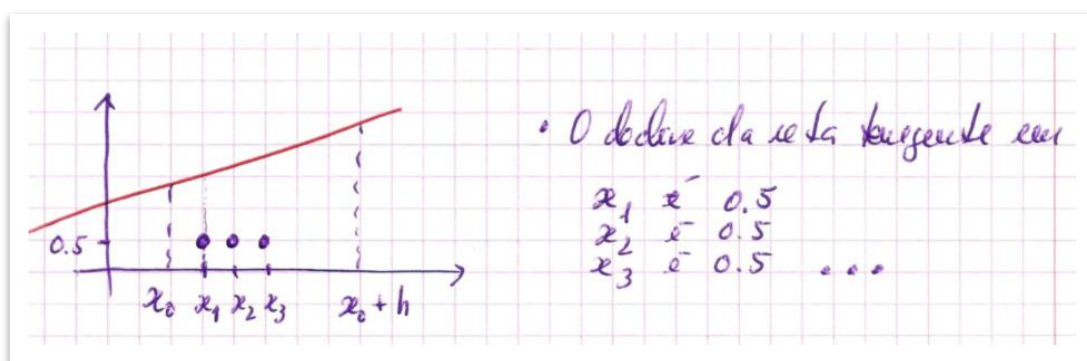 0.5
x₀ x₁ x₂ x₃ x₀ + h
• O declive da reta tangente em
x₁ é 0.5
x₂ é 0.5
x₃ é 0.5 ...